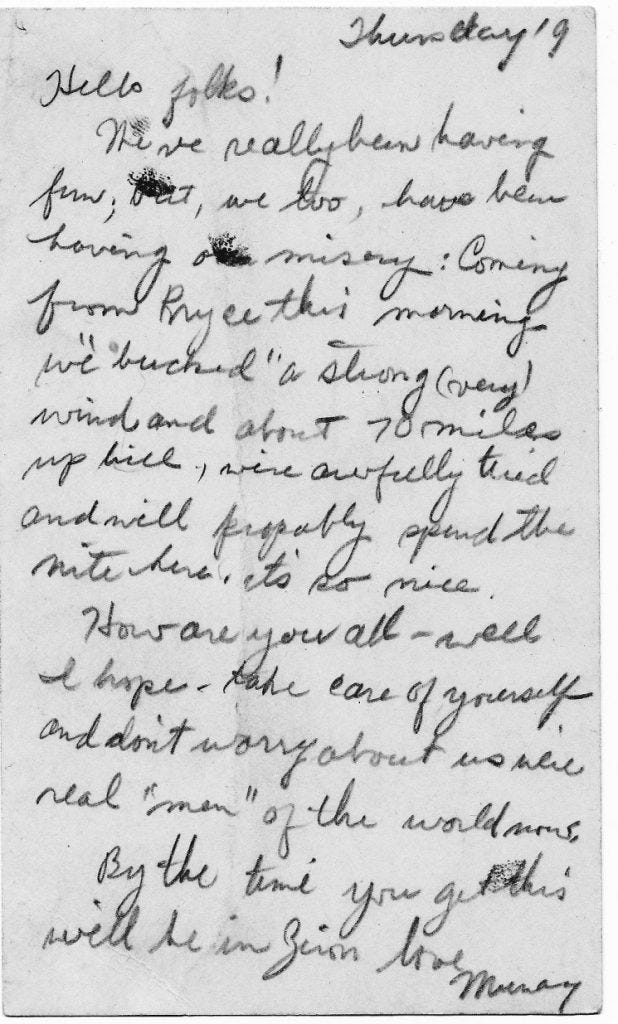 Thursday '9
Hello folks!
We've really been having
fun; but, we too, have been
having our misery: Coming
from Bryce this morning
we "bucked" a strong (very)
wind and about 70 miles
up hill, we're awfully tired
and will propably spend the
nite here, it's so nice.
How are you all - well
I hope - take care of yourself
and don't worry about us we're
real "men" of the world now.
By the time you get this
we'll be in Zion love
Murray